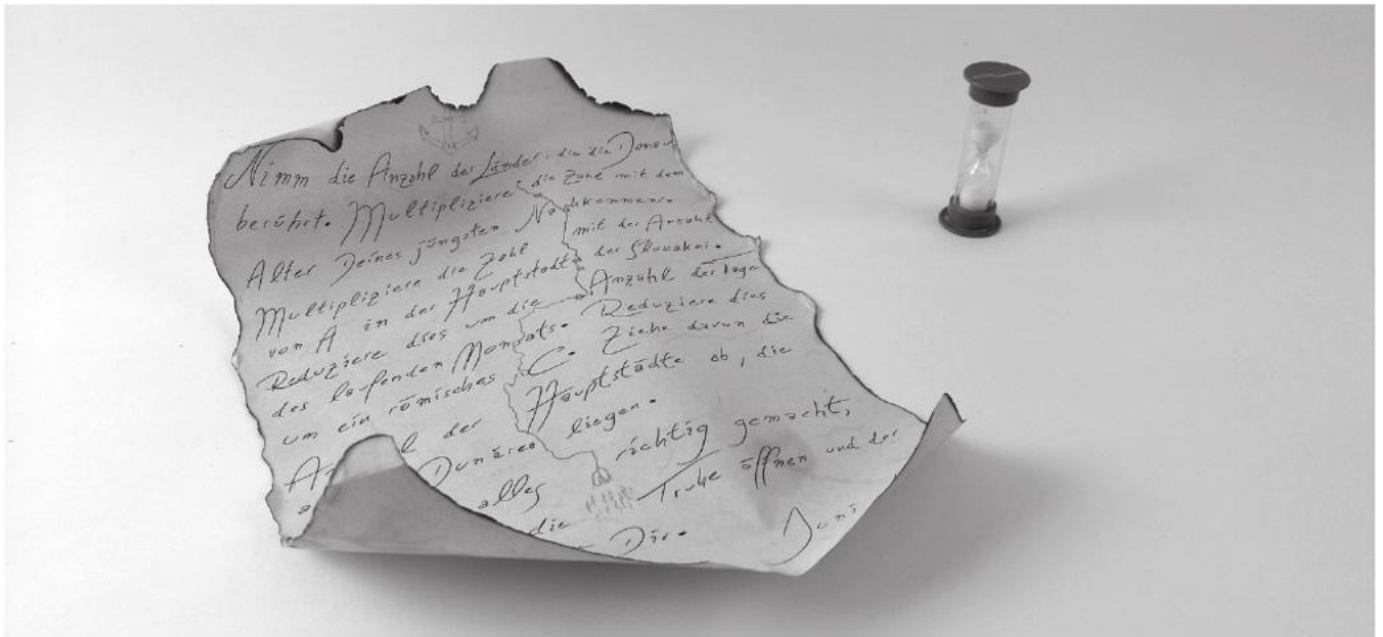 Nimm die Anzahl der Länder, die die Donau
berührt. Multipliziere die Zahl mit dem
Alter Deines jüngsten Nachkommen.
Multipliziere die Zahl mit der Anzahl
von A in der Hauptstadt der Slowakei.
Reduziere dies um die Anzahl der Tage
des laufenden Monats. Reduziere dies
um ein römisches C. Ziehe davon die
der Hauptstädte ab, die
liegen.
alles richtig gemacht,
die Truhe öffnen und der
Dir.